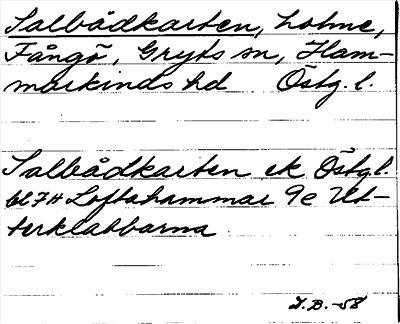 Salbådkarten, holme,
Fångö, Gryts sn, Ham-
markinds hd Östg. l.
Salbådkarten ek Östgl.
bl 7H Loftahammar 9e Ut-
terklabbarna
I.B. -58